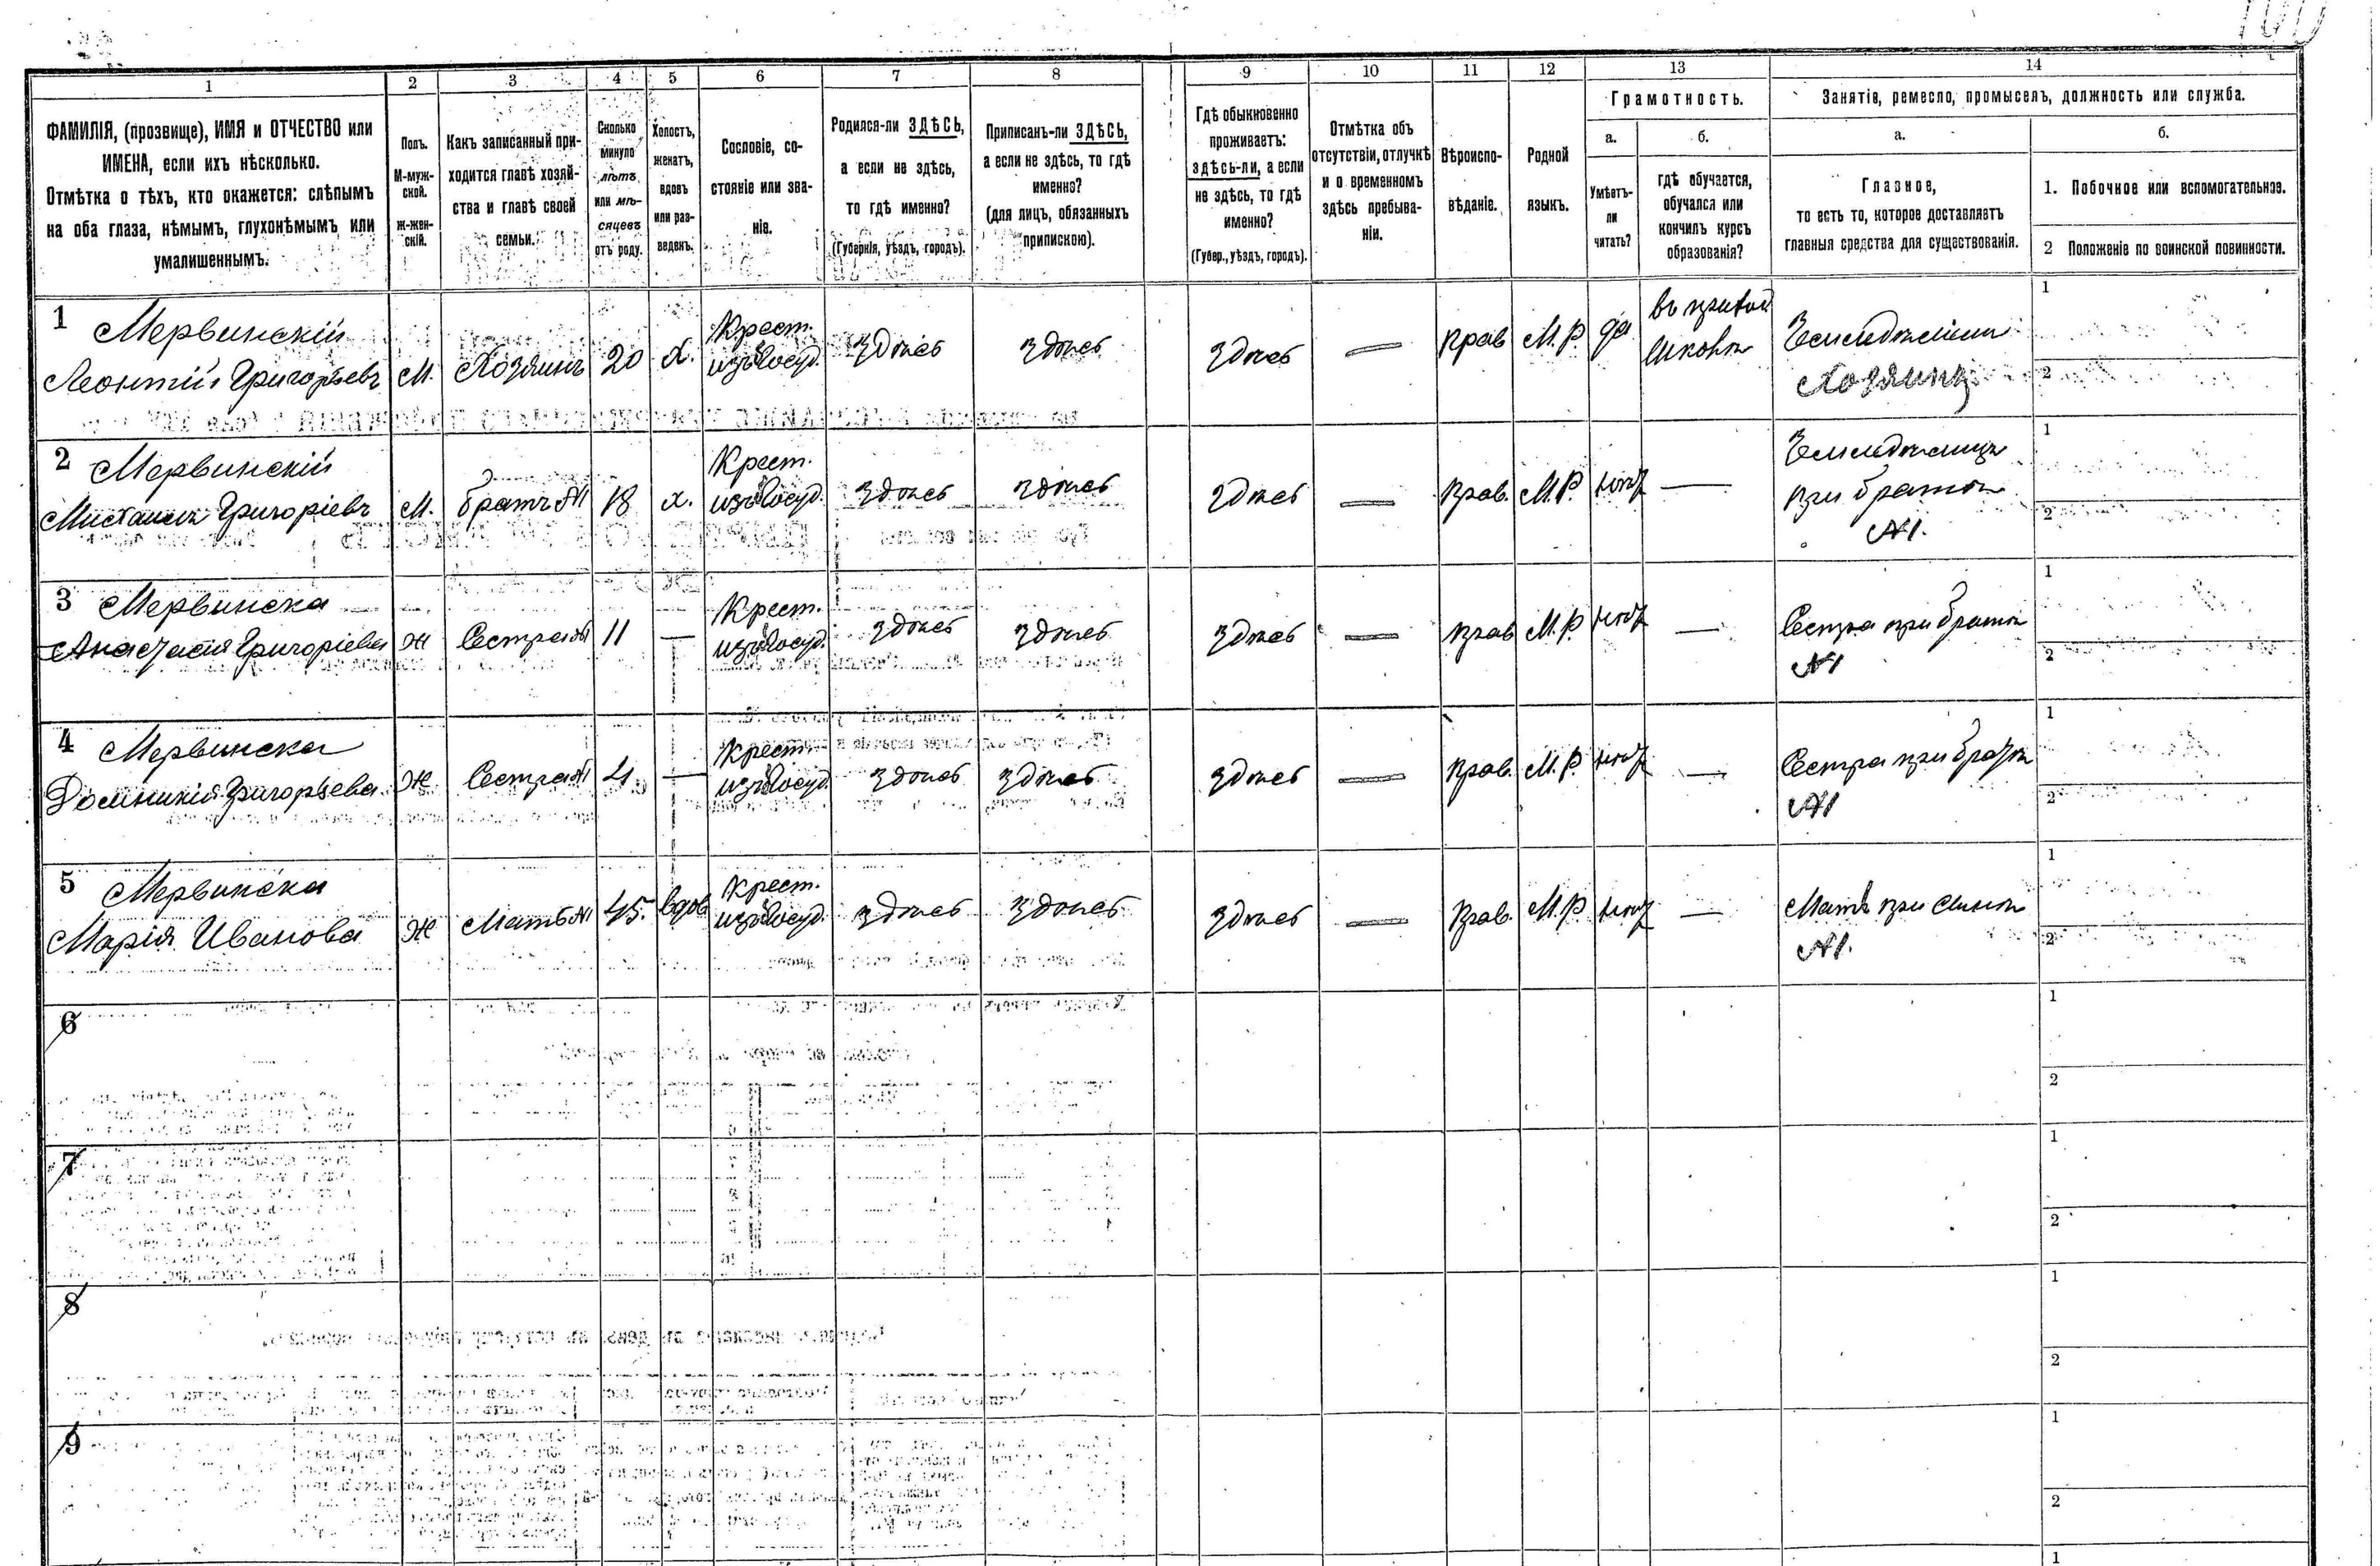 100
1
2
3
4
5
6
7
8
9
10
11
12
13
14
ФАМИЛІЯ, (прозвище), ИМЯ и ОТЧЕСТВО или
ИМЕНА, если ихъ нѣсколько.
Отмѣтка о тѣхъ, кто окажется: слѣпымъ
на оба глаза, нѣмымъ, глухонѣмымъ или
умалишеннымъ.
Полъ.
М-муж-
ской.
ж-жен-
скій.
Какъ записанный при-
ходится главѣ хозяй-
ства и главѣ своей
семьи.
Сколько
минуло
лѣтъ
или мѣ-
сяцевъ
отъ роду.
Холостъ,
женатъ,
вдовъ
или раз-
веденъ.
Сословіе, со-
стояніе или зва-
ніе.
Родился-ли ЗДѢСЬ,
а если не здѣсь,
то гдѣ именно?
(Губернія, уѣздъ, городъ).
Приписанъ-ли ЗДѢСЬ,
а если не здѣсь, то гдѣ
именно?
(для лицъ, обязанныхъ
припискою).
Гдѣ обыкновенно
проживаетъ:
здѣсь-ли, а если
не здѣсь, то гдѣ
именно?
(Губер., уѣздъ, городъ).
Отмѣтка объ
отсутствіи, отлучкѣ
и о временномъ
здѣсь пребыва-
ніи.
Вѣроиспо-
вѣданіе.
Родной
языкъ.
Грамотность.
а.
Умѣетъ-
ли
читать?
б.
гдѣ обучается,
обучался или
кончилъ курсъ
образованія?
Занятіе, ремесло, промыселъ, должность или служба.
а.
Главное,
то есть то, которое доставляетъ
главныя средства для существованія.
б.
1. Побочное или вспомогательное.
2 Положеніе по воинской повинности.
1 Мервинскій
Леонтій Григорьевъ
М.
Хозяинъ
20
х.
Крест.
изъ госуд.
здѣсь
здѣсь
здѣсь
—
Прав
М.Р.
да
Хозяинъ
1
2
2 Мервинскій
Григоріевъ
М.
братъ №1
18
х.
Крест.
изъ госуд.
здѣсь
здѣсь
здѣсь
—
Прав.
М.Р.
нѣт
—
при братѣ
№1.
1
2
3 Мервинска
Анастасія Григоріева
Ж
Сестра №1
11
—
Крест.
изъ госуд.
здѣсь
здѣсь
здѣсь
—
Прав
М.Р.
нѣт
—
Сестра при братѣ
№1
1
2
4 Мервинска
Домникія Григорьева
Ж
Сестра №1
4
—
Крест.
изъ госуд.
здѣсь
здѣсь
здѣсь
—
Прав.
М.Р.
нѣт
—
Сестра при братѣ
№1
1
2
5 Мервинска
Марія Иванова
Ж
Мать №1
45.
вдов
Крест.
изъ госуд.
здѣсь
здѣсь
здѣсь
—
Прав.
М.Р.
нѣт
—
Мать при синѣ
№1.
1
2
6
1
2
7
1
2
8
1
2
9
1
2
1